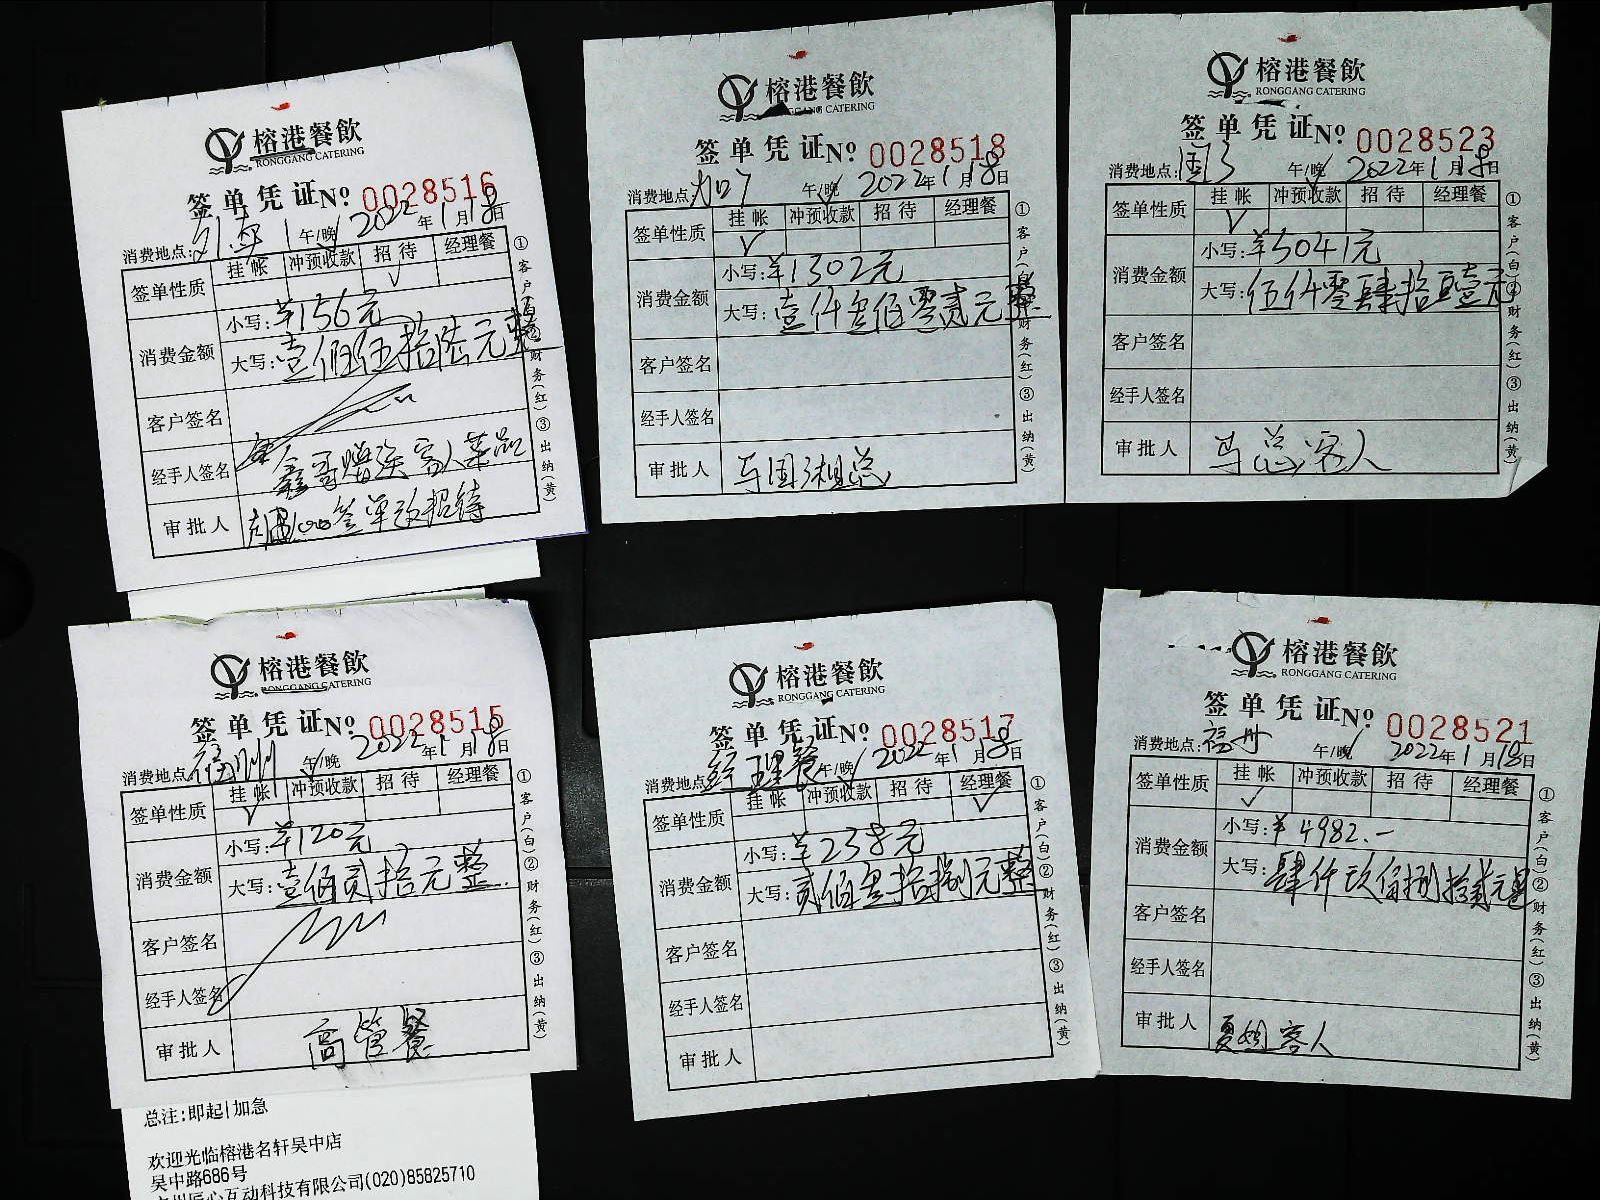 榕港餐飲
RONGGANG CATERING
签单凭证 No 0028516
消费地点: 午/晚 2022年1月18日
签单性质 挂帐 冲预收款 招待 经理餐
✓
消费金额 小写:¥156元
大写:壹佰伍拾陆元整
客户签名
经手人签名 鑫哥赠送客人菜品
审批人 签单改招待
①客户(白)②财务(红)③出纳(黄)
榕港餐飲
RONGGANG CATERING
签单凭证 No 0028518
消费地点: 午/晚 2022年1月18日
签单性质 挂帐 冲预收款 招待 经理餐
✓
消费金额 小写:¥1302元
大写:壹仟叁佰零贰元整
客户签名
经手人签名
审批人
①客户(白)②财务(红)③出纳(黄)
榕港餐飲
RONGGANG CATERING
签单凭证 No 0028523
消费地点: 午/晚 2022年1月18日
签单性质 挂帐 冲预收款 招待 经理餐
✓
消费金额 小写:¥5041元
大写:伍仟零肆拾壹元
客户签名
经手人签名
审批人 马总客人
①客户(白)②财务(红)③出纳(黄)
榕港餐飲
RONGGANG CATERING
签单凭证 No 0028515
消费地点: 福州 午/晚 2022年1月18日
签单性质 挂帐 冲预收款 招待 经理餐
✓
消费金额 小写:¥120元
大写:壹佰贰拾元整
客户签名
经手人签名
审批人 高管餐
①客户(白)②财务(红)③出纳(黄)
总注:即起|加急
欢迎光临榕港名轩吴中店
吴中路686号
广州匠心互动科技有限公司(020)85825710
榕港餐飲
RONGGANG CATERING
签单凭证 No 0028517
消费地点: 经理餐 午/晚 2022年1月18日
签单性质 挂帐 冲预收款 招待 经理餐
✓
消费金额 小写:¥238元
大写:贰佰叁拾捌元整
客户签名
经手人签名
审批人
①客户(白)②财务(红)③出纳(黄)
榕港餐飲
RONGGANG CATERING
签单凭证 No 0028521
消费地点: 福州 午/晚 2022年1月18日
签单性质 挂帐 冲预收款 招待 经理餐
✓
消费金额 小写:¥4982.-
大写:肆仟玖佰捌拾贰元整
客户签名
经手人签名
审批人 客人
①客户(白)②财务(红)③出纳(黄)